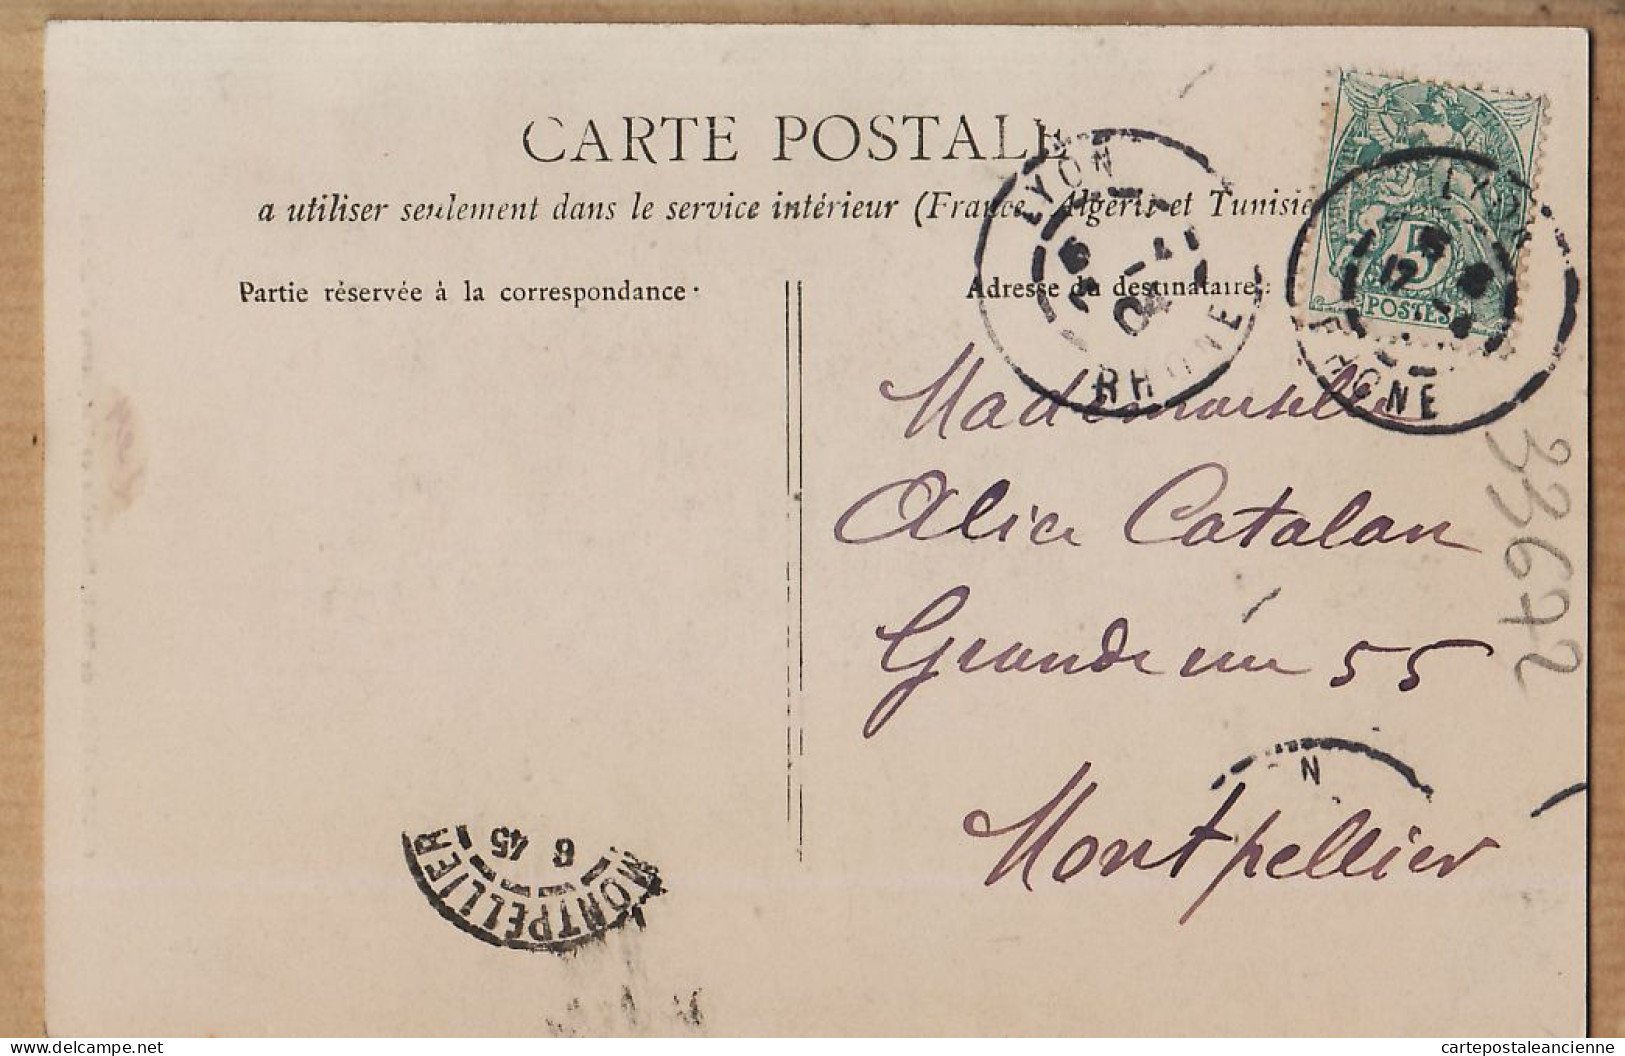 CARTE POSTALE
a utiliser seulement dans le service intérieur (France, Algérie et Tunisie
Partie réservée à la correspondance
Adresse du destinataire
LYON
04
RHONE
LYON
RHONE
5
POSTES
Mademoiselle
Alice Catalan
Grande rue 55
Montpellier
33672
MONTPELLIER
6 45
N
cartepostaleancienne
delcampe.net